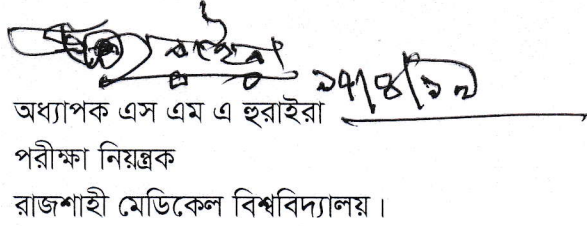 অধ্যাপক এস এম এ হুরাইরা
পরীক্ষা নিয়ন্ত্রক
রাজশাহী মেডিকেল বিশ্ববিদ্যালয়।